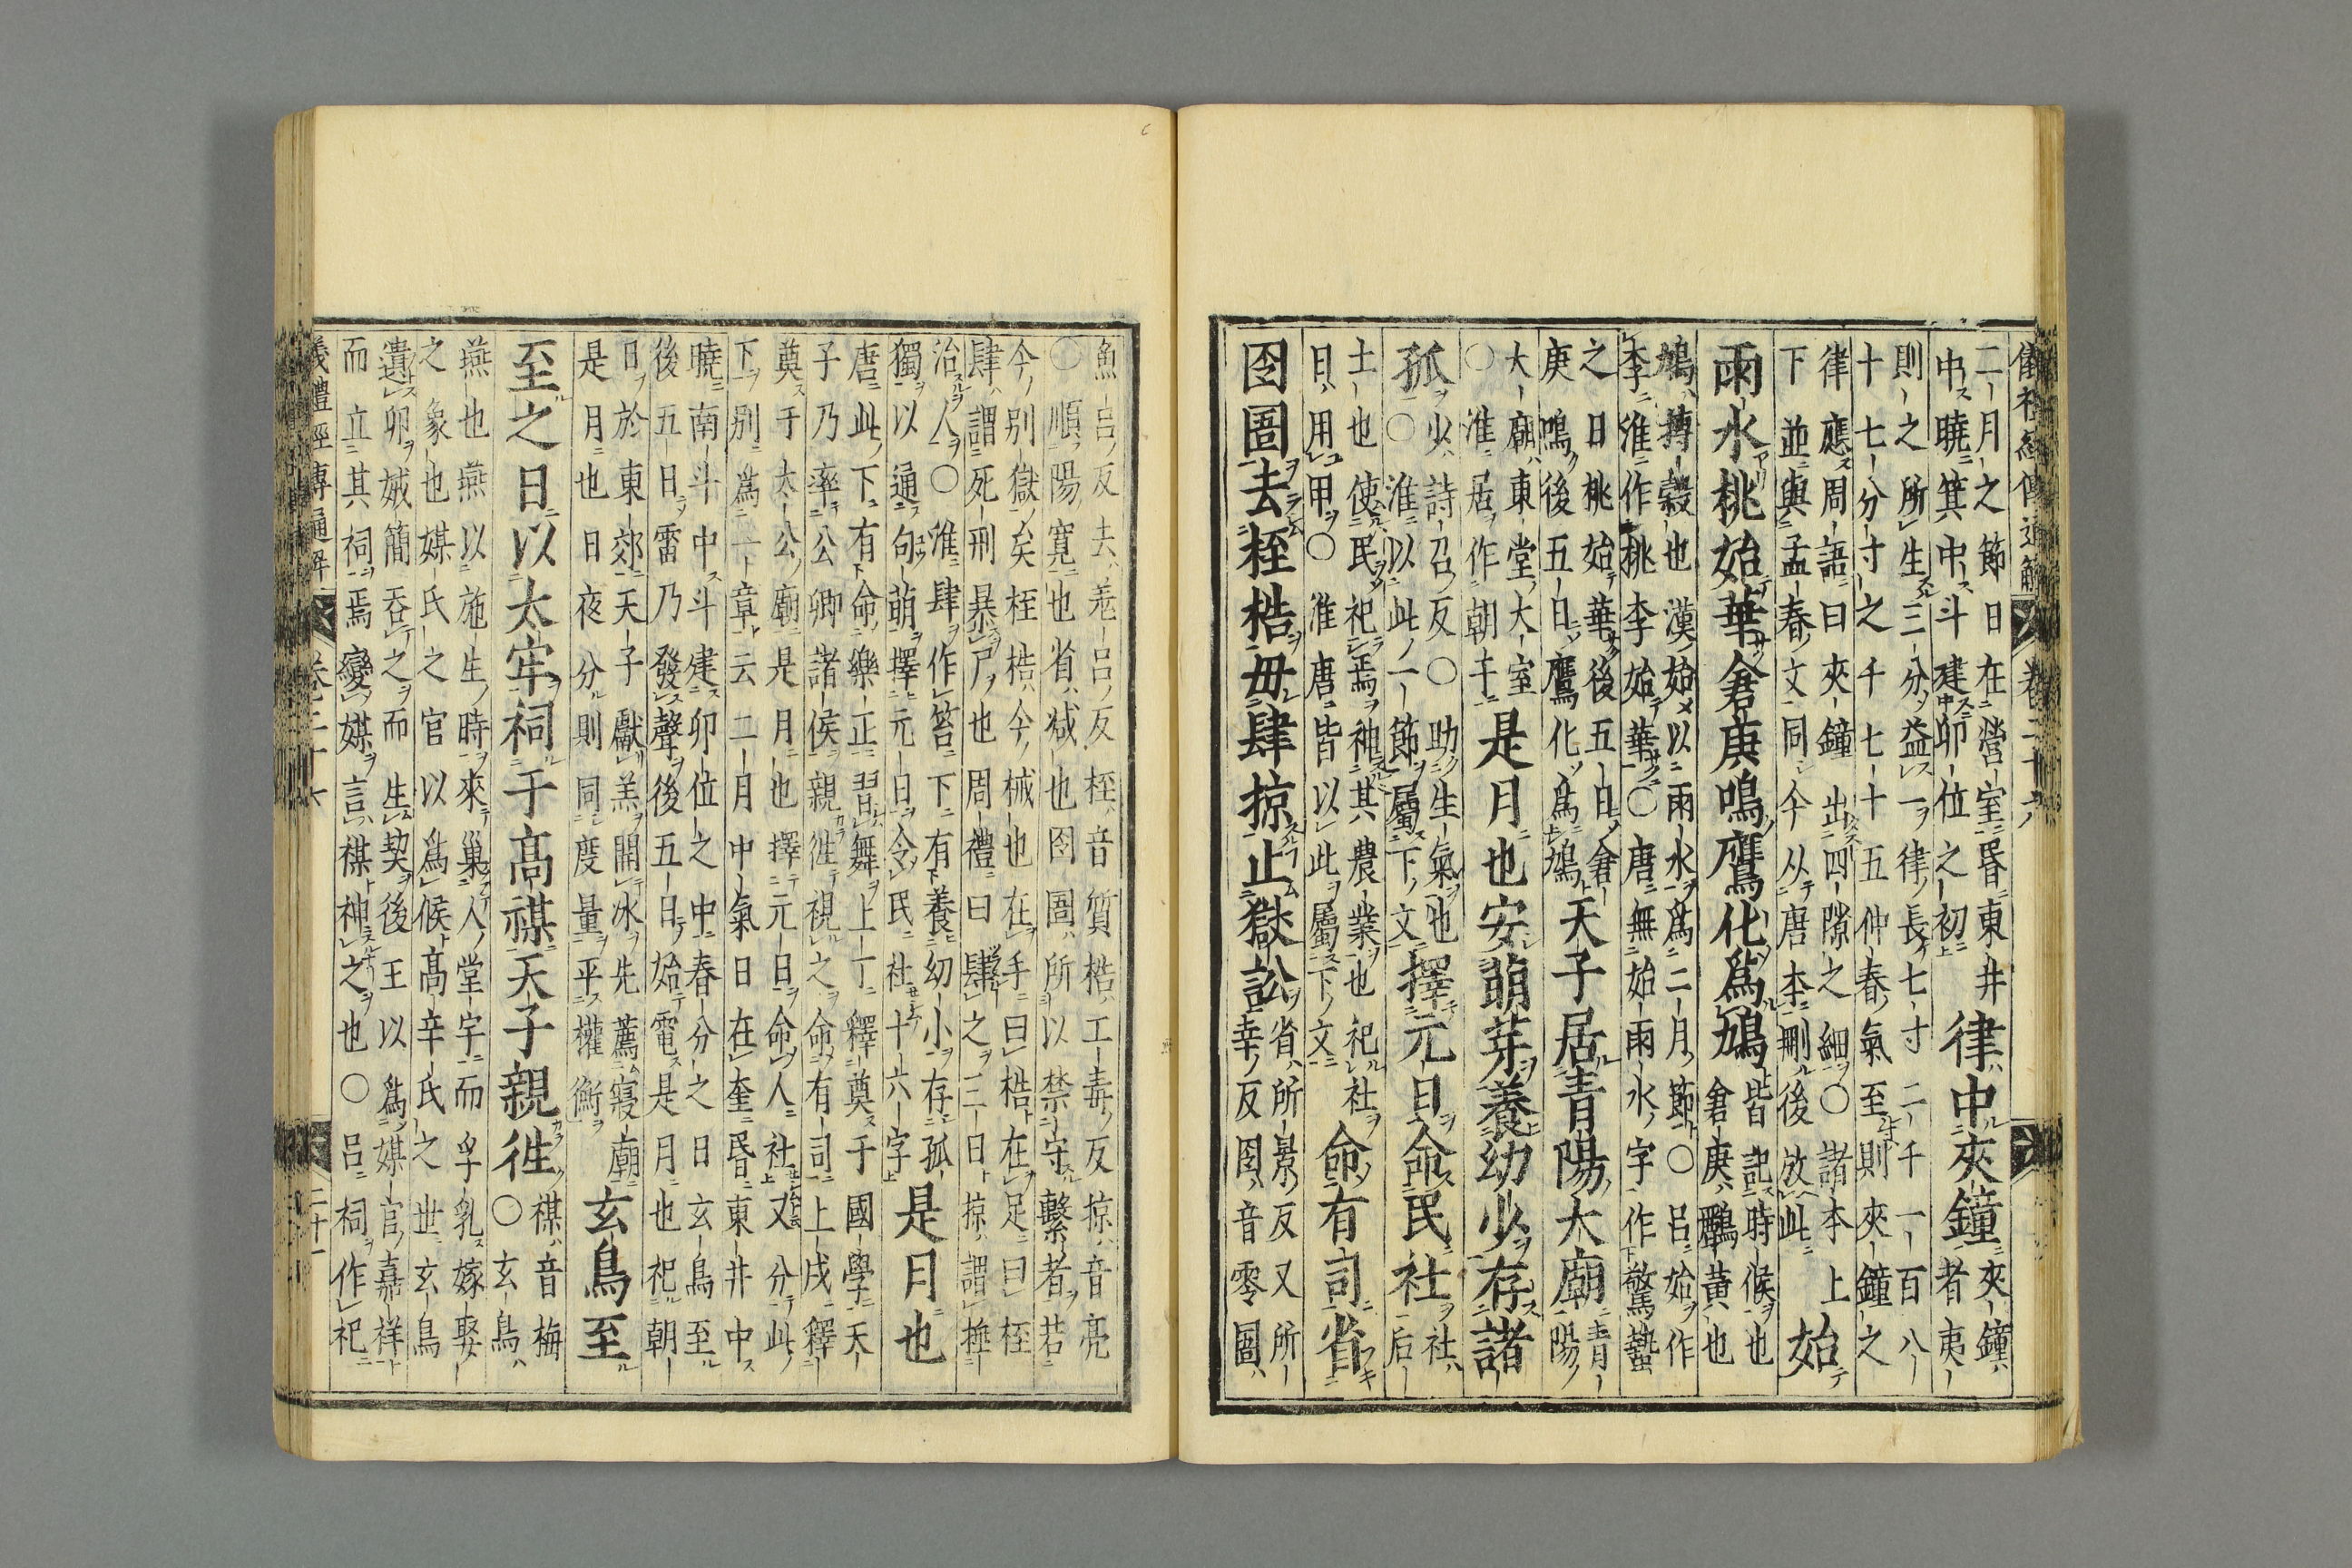 儀禮經傳通解 卷二十六
二月之節日在營室昏東井
中曉箕中斗建卯位之初
律中夾鐘
夾鐘
者夷
則之所生三分益一律長七寸二千一百八
十七分寸之千七十五仲春氣至則夾鐘之
律應周語曰夾鐘出四隙之細〇諸本上
下並與孟春文同今从唐本刪後放此
始
雨水桃始華倉庚鳴鷹化爲鳩
皆記時候也
倉庚鸝黃也
鳩搏穀也漢始以雨水爲二月節〇呂始作
李淮作桃李始華〇唐無始雨水字作驚蟄
之日桃始華後五日倉
庚鳴後五日鷹化爲鳩
天子居青陽太廟
青
陽
大廟東堂大室
〇淮居作朝于
是月也安萌芽養幼少存諸
孤
少詩召反〇助生氣也
〇淮以此一節屬下文
擇元日命民社
社
后
土也使民祀焉神其農業也祀社
日用甲〇淮唐皆以此屬下文
命有司省
囹圄去桎梏毋肆掠止獄訟
省所景反又所
幸反囹音零圄
魚呂反去羌呂反桎音質梏工毒反掠音亮
〇順陽寬也省減也囹圄所以禁守繫者若
今別獄矣桎梏今械也在手曰梏在足曰桎
肆謂死刑暴尸也周禮曰肆之三日掠謂捶
治人〇淮肆作笞下有養幼小存孤
獨以通句萌擇元日令民社十六字
是月也
唐此下有命樂正習舞上丁釋奠于國學天
子乃率公卿諸侯親徃視之命有司上戌釋
奠于太公廟是月也擇元日命人社又分此
下別爲一章云二月中氣日在奎昏東井中
曉南斗中斗建卯位之中春分之日玄鳥至
後五日雷乃發聲後五日始電是月也祀朝
日於東郊天子獻羔開冰先薦寢廟
是月也日夜分則同度量平權衡
玄鳥至
至之日以太牢祠于髙禖天子親徃
禖音梅
〇玄鳥
燕也燕以施生時來巢人堂宇而孚乳嫁娶
之象也媒氏之官以爲候髙辛氏之世玄鳥
遺卵娀簡吞之而生契後王以爲媒官嘉祥
而立其祠焉變媒言禖神之也〇呂祠作祀
義禮經傳通解 卷二十六 二十一